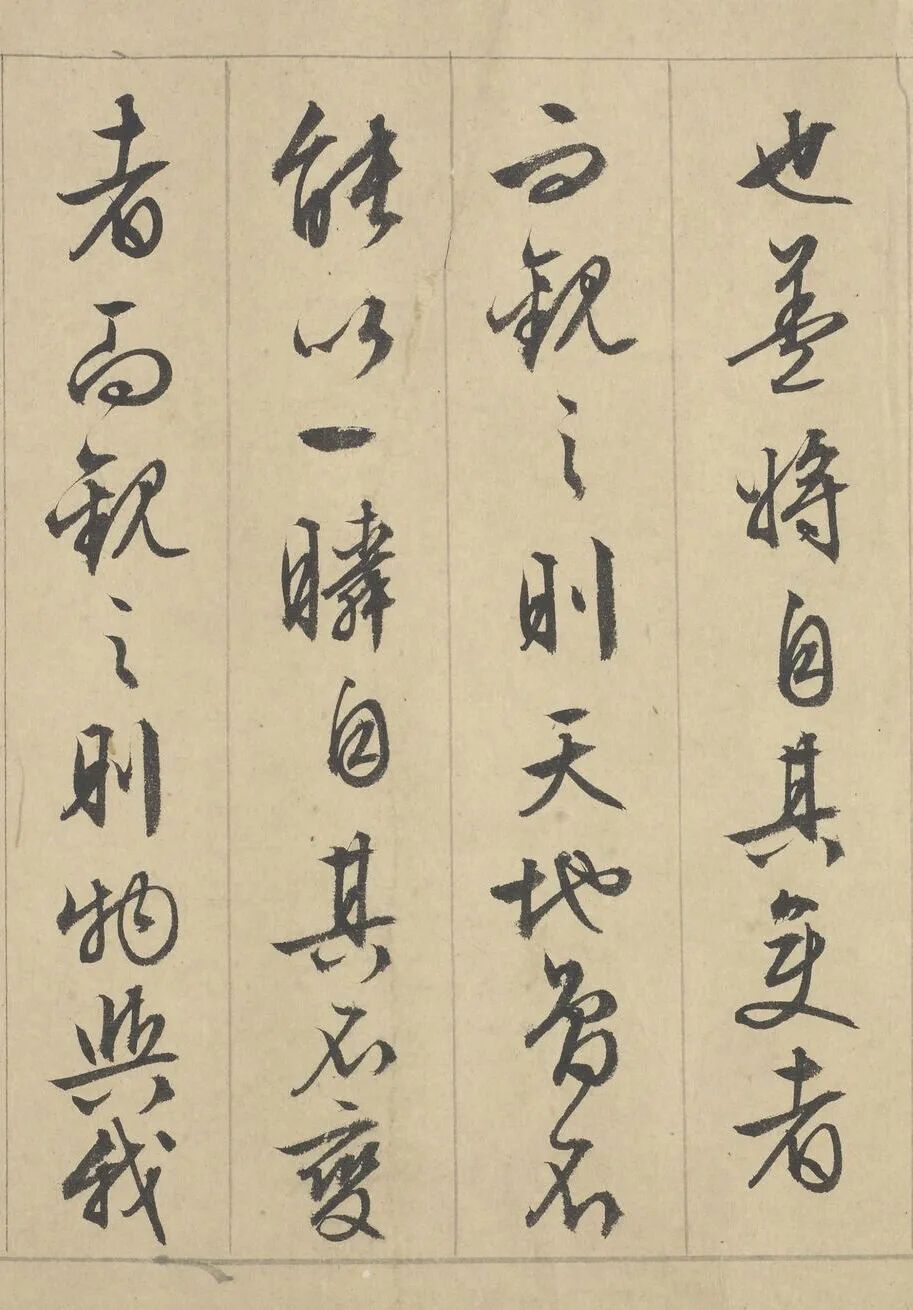 也蓋將自其變者
而觀之則天地曾不
能以一瞬自其不變
者而觀之則物與我